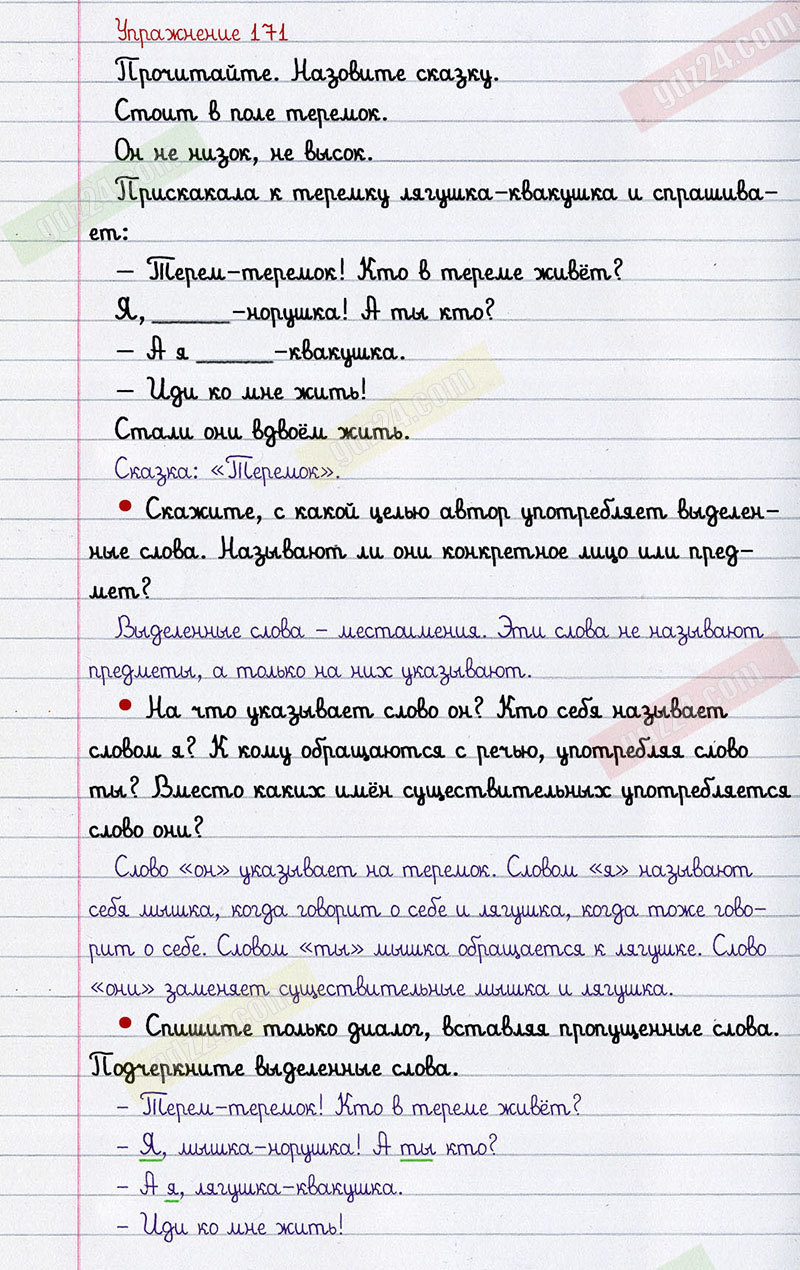 Упражнение 171
Прочитайте. Назовите сказку.
Стоит в поле теремок.
Он не низок, не высок.
Прискакала к теремку лягушка-квакушка и спрашива-
ет:
– Терем-теремок! Кто в тереме живёт?
Я, ______-норушка! А ты кто?
– А я ______-квакушка.
– Иди ко мне жить!
Стали они вдвоём жить.
Сказка: «Теремок».
• Скажите, с какой целью автор употребляет выделен-
ные слова. Называют ли они конкретное лицо или пред-
мет?
Выделенные слова – местоимения. Эти слова не называют
предметы, а только на них указывают.
• На что указывает слово он? Кто себя называет
словом я? К кому обращаются с речью, употребляя слово
ты? Вместо каких имён существительных употребляется
слово они?
Слово «он» указывает на теремок. Словом «я» называют
себя мышка, когда говорит о себе и лягушка, когда тоже гово-
рит о себе. Словом «ты» мышка обращается к лягушке. Слово
«они» заменяет существительные мышка и лягушка.
• Спишите только диалог, вставляя пропущенные слова.
Подчеркните выделенные слова.
– Терем-теремок! Кто в тереме живёт?
– Я, мышка-норушка! А ты кто?
– А я, лягушка-квакушка.
– Иди ко мне жить!
gdz24.com
gdz24.com
gdz24.com
gdz24.com
gdz24.com